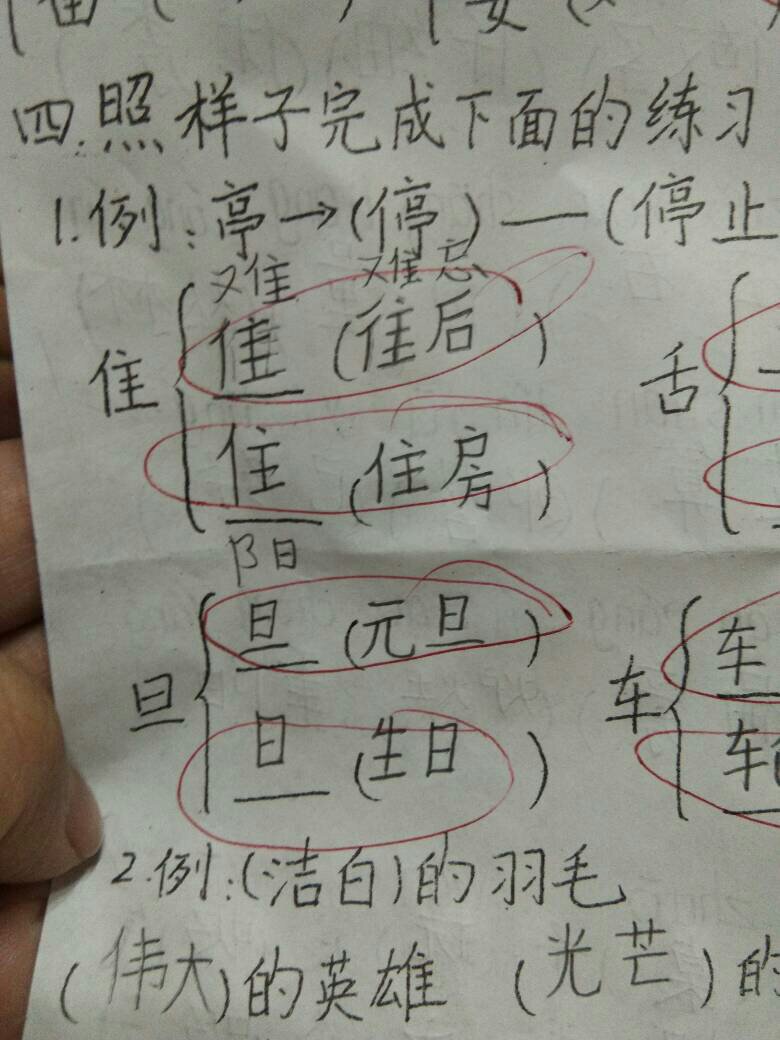 四.照样子完成下面的练习
1.例:亭→(停)—(停止
难 难忘
隹 佳 (往后)
舌
住 (住房)
阳
旦 旦 (元旦)
车 车
日 (生日)
2.例:(洁白)的羽毛
(伟大)的英雄 (光芒)的